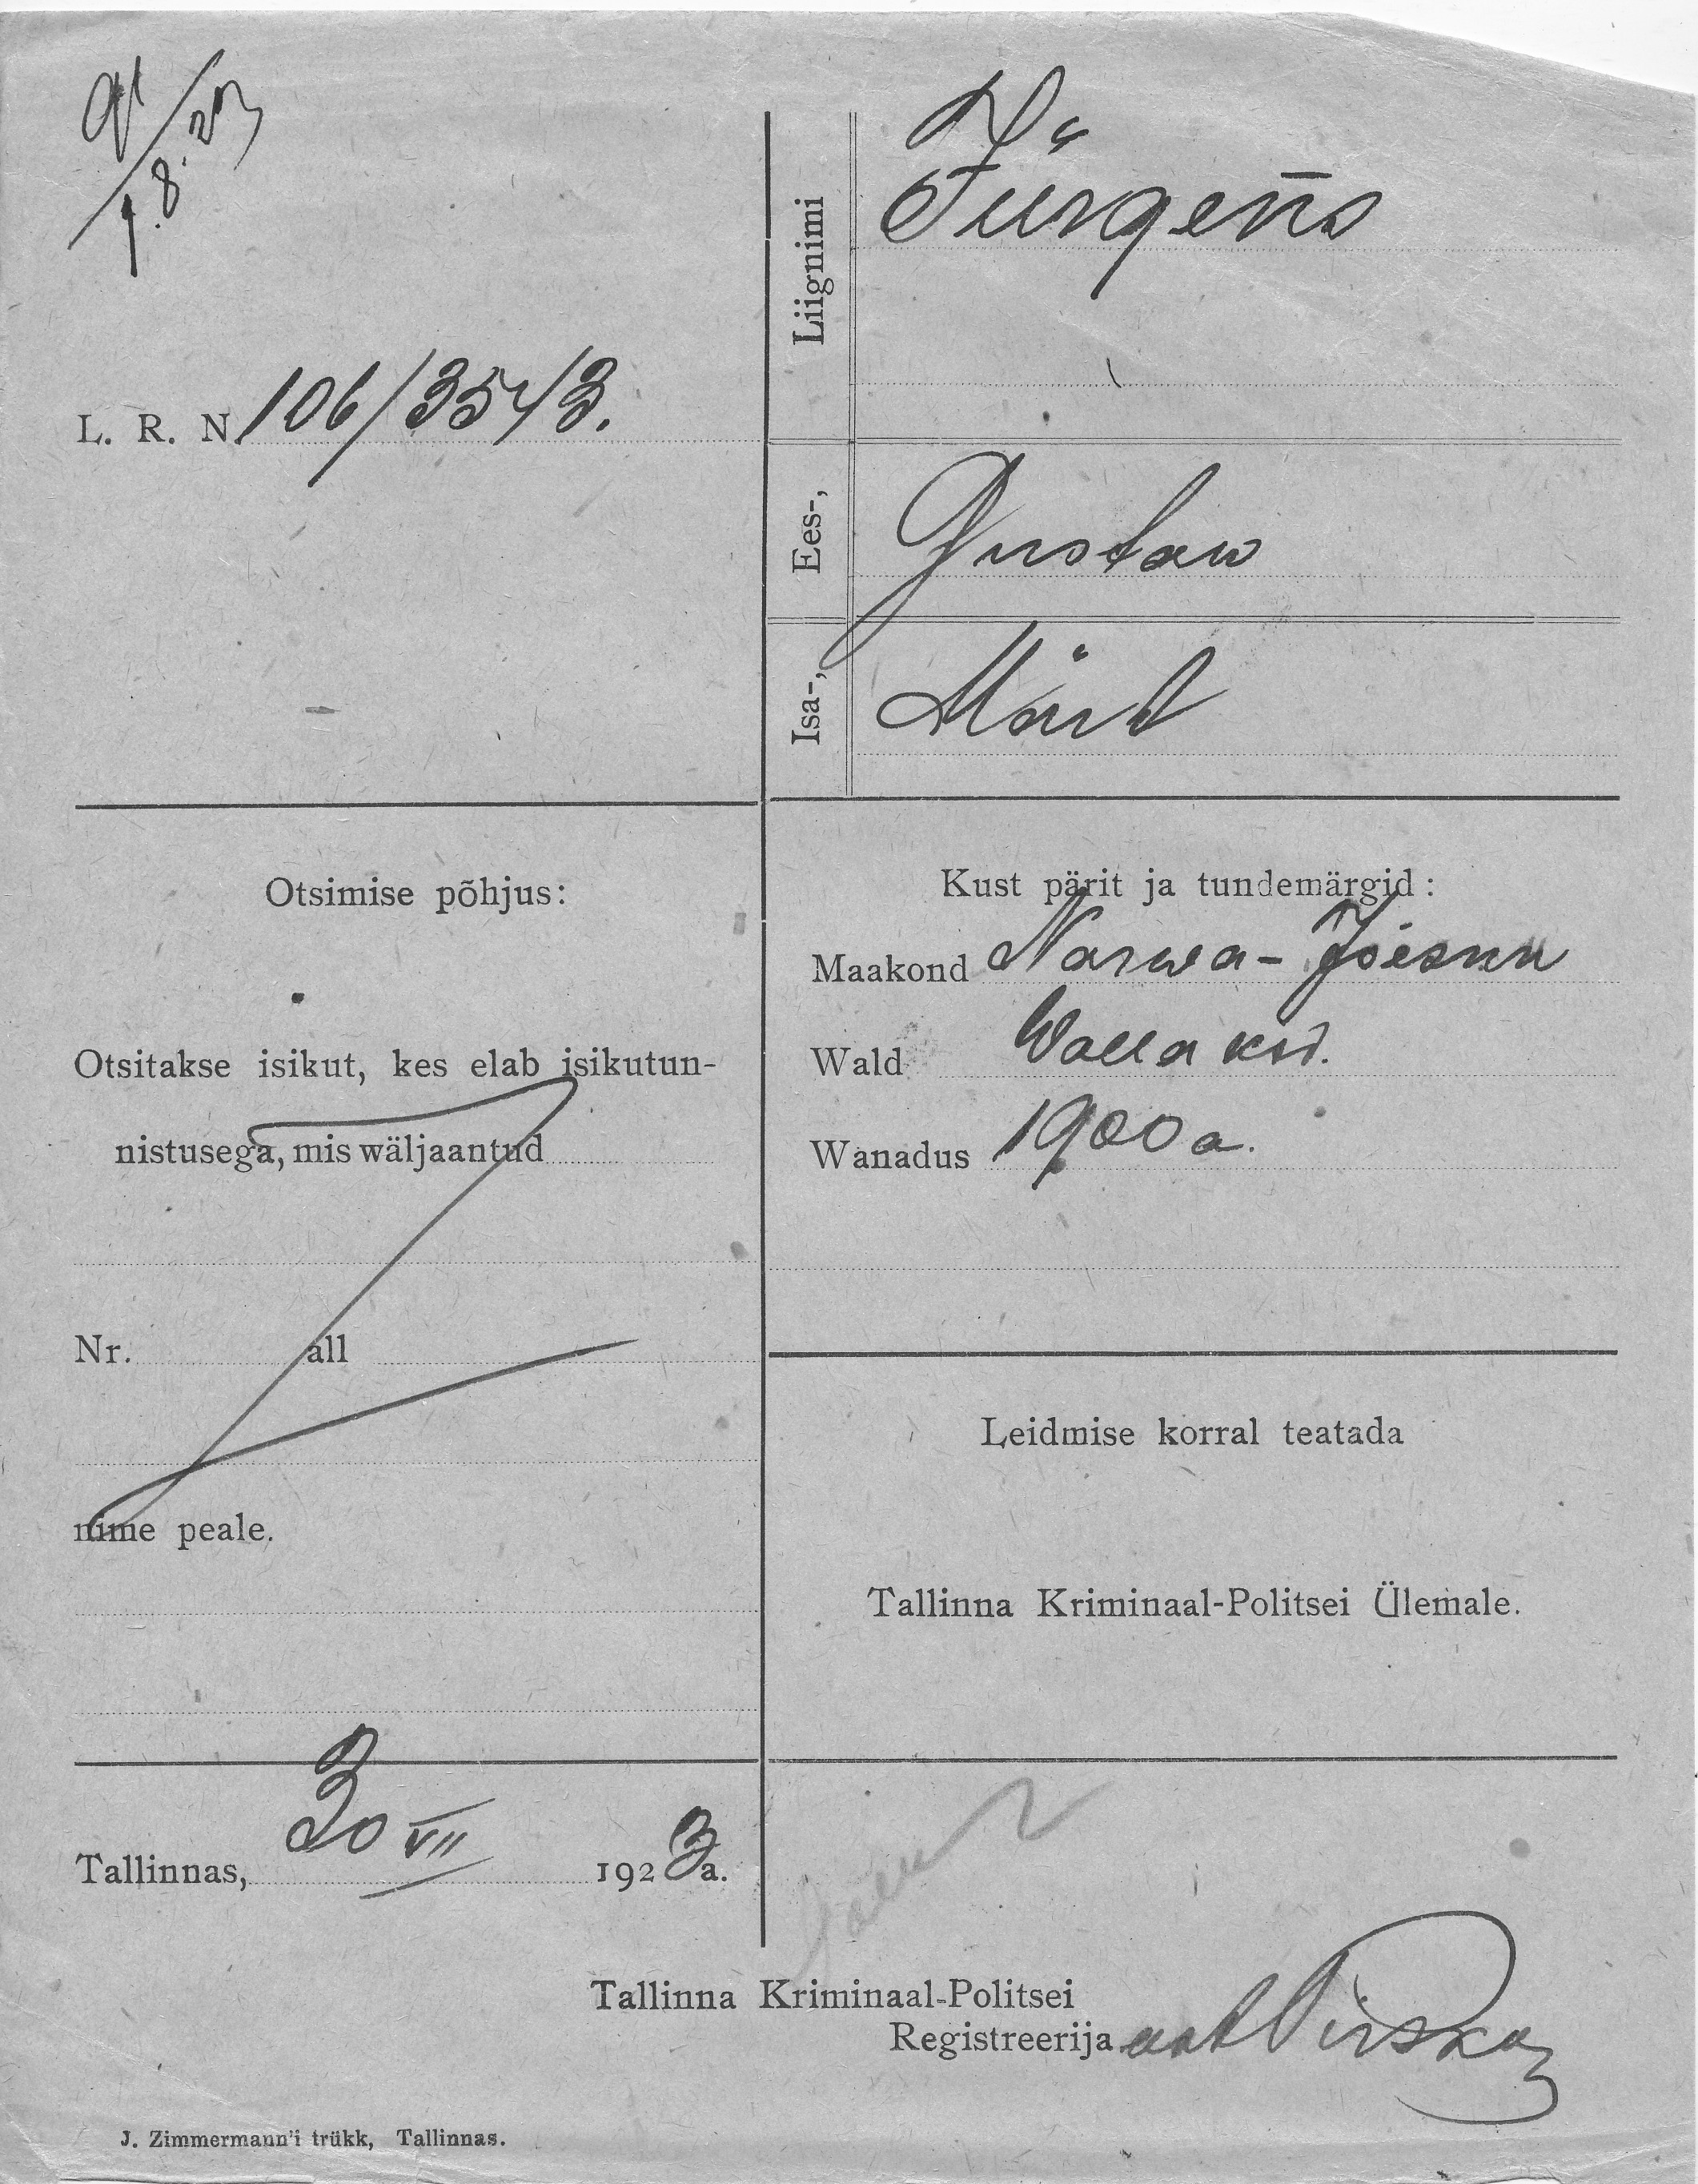 1.8.23
L. R. N. 106/3543.
Liignimi Jürgens
Ees-, Gustaw
Isa-, Märt
Otsimise põhjus:
Otsitakse isikut, kes elab isikutun-
nistusega, mis wäljaantud
Nr. all
nime peale.
Kust pärit ja tundemärgid:
Maakond Narwa-Jõesuu
Wald Walla kod.
Wanadus 1900 a.
Leidmise korral teatada
Tallinna Kriminaal-Politsei Ülemale.
Tallinnas, 30 VII 1923 a.
Tallinna Kriminaal-Politsei
Registreerija
J. Zimmermann'i trükk, Tallinnas.